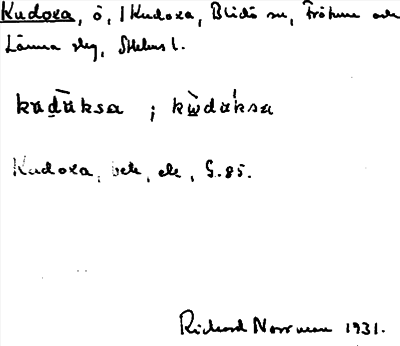 Kudoxa, ö, i Kudoxa, Blidö sn, Frötuna och
Länna slg, Sthlms l.
kudùksa ; kùdúksa
Kudoxa, bek, ek, S.85.
Richard Norrman 1931.